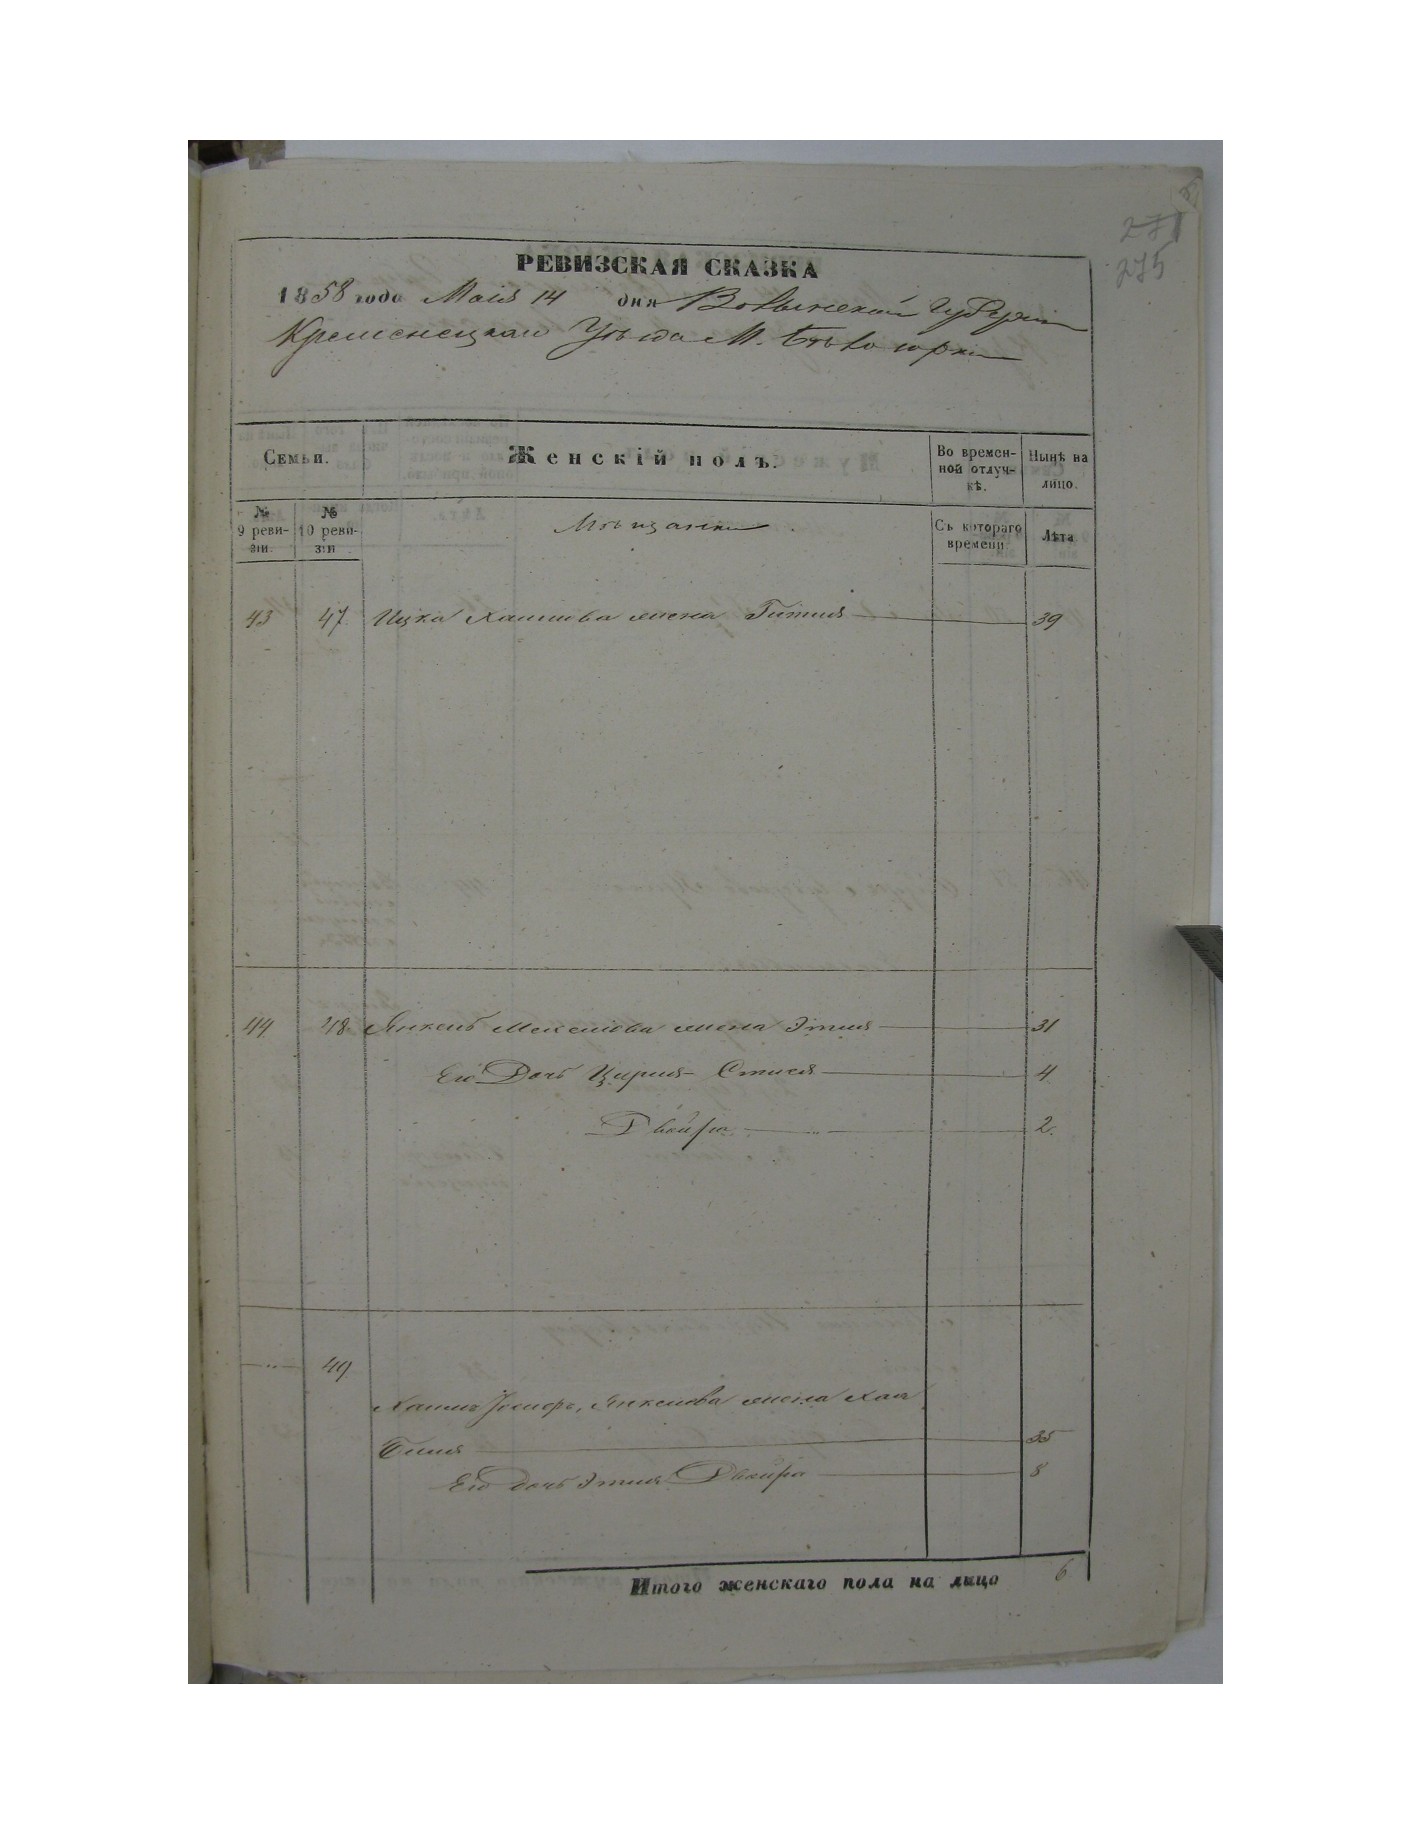 271
275
РЕВИЗСКАЯ СКАЗКА
1858 года Маія 14 дня Волынской Губерніи
Кременецкаго Уѣзда М. Бѣлозорки
Семьи.
Женскій полъ.
Во времен-
ной отлуч-
кѣ.
Нынѣ на
лицо.
№
9 реви-
зіи.
№
10 реви-
зіи
Мѣщанки
Съ котораго
времени.
Лѣта
43 47 Ицка Хаимова жена Гитля 39
44 48 Янкель жена Этля 31
Его Дочь Цирля 4
Двойра 2.
49
Хаимъ Янкелева жена Хая
35
Его дочь Этля Двойра 8
Итого женскаго пола на лицо 6